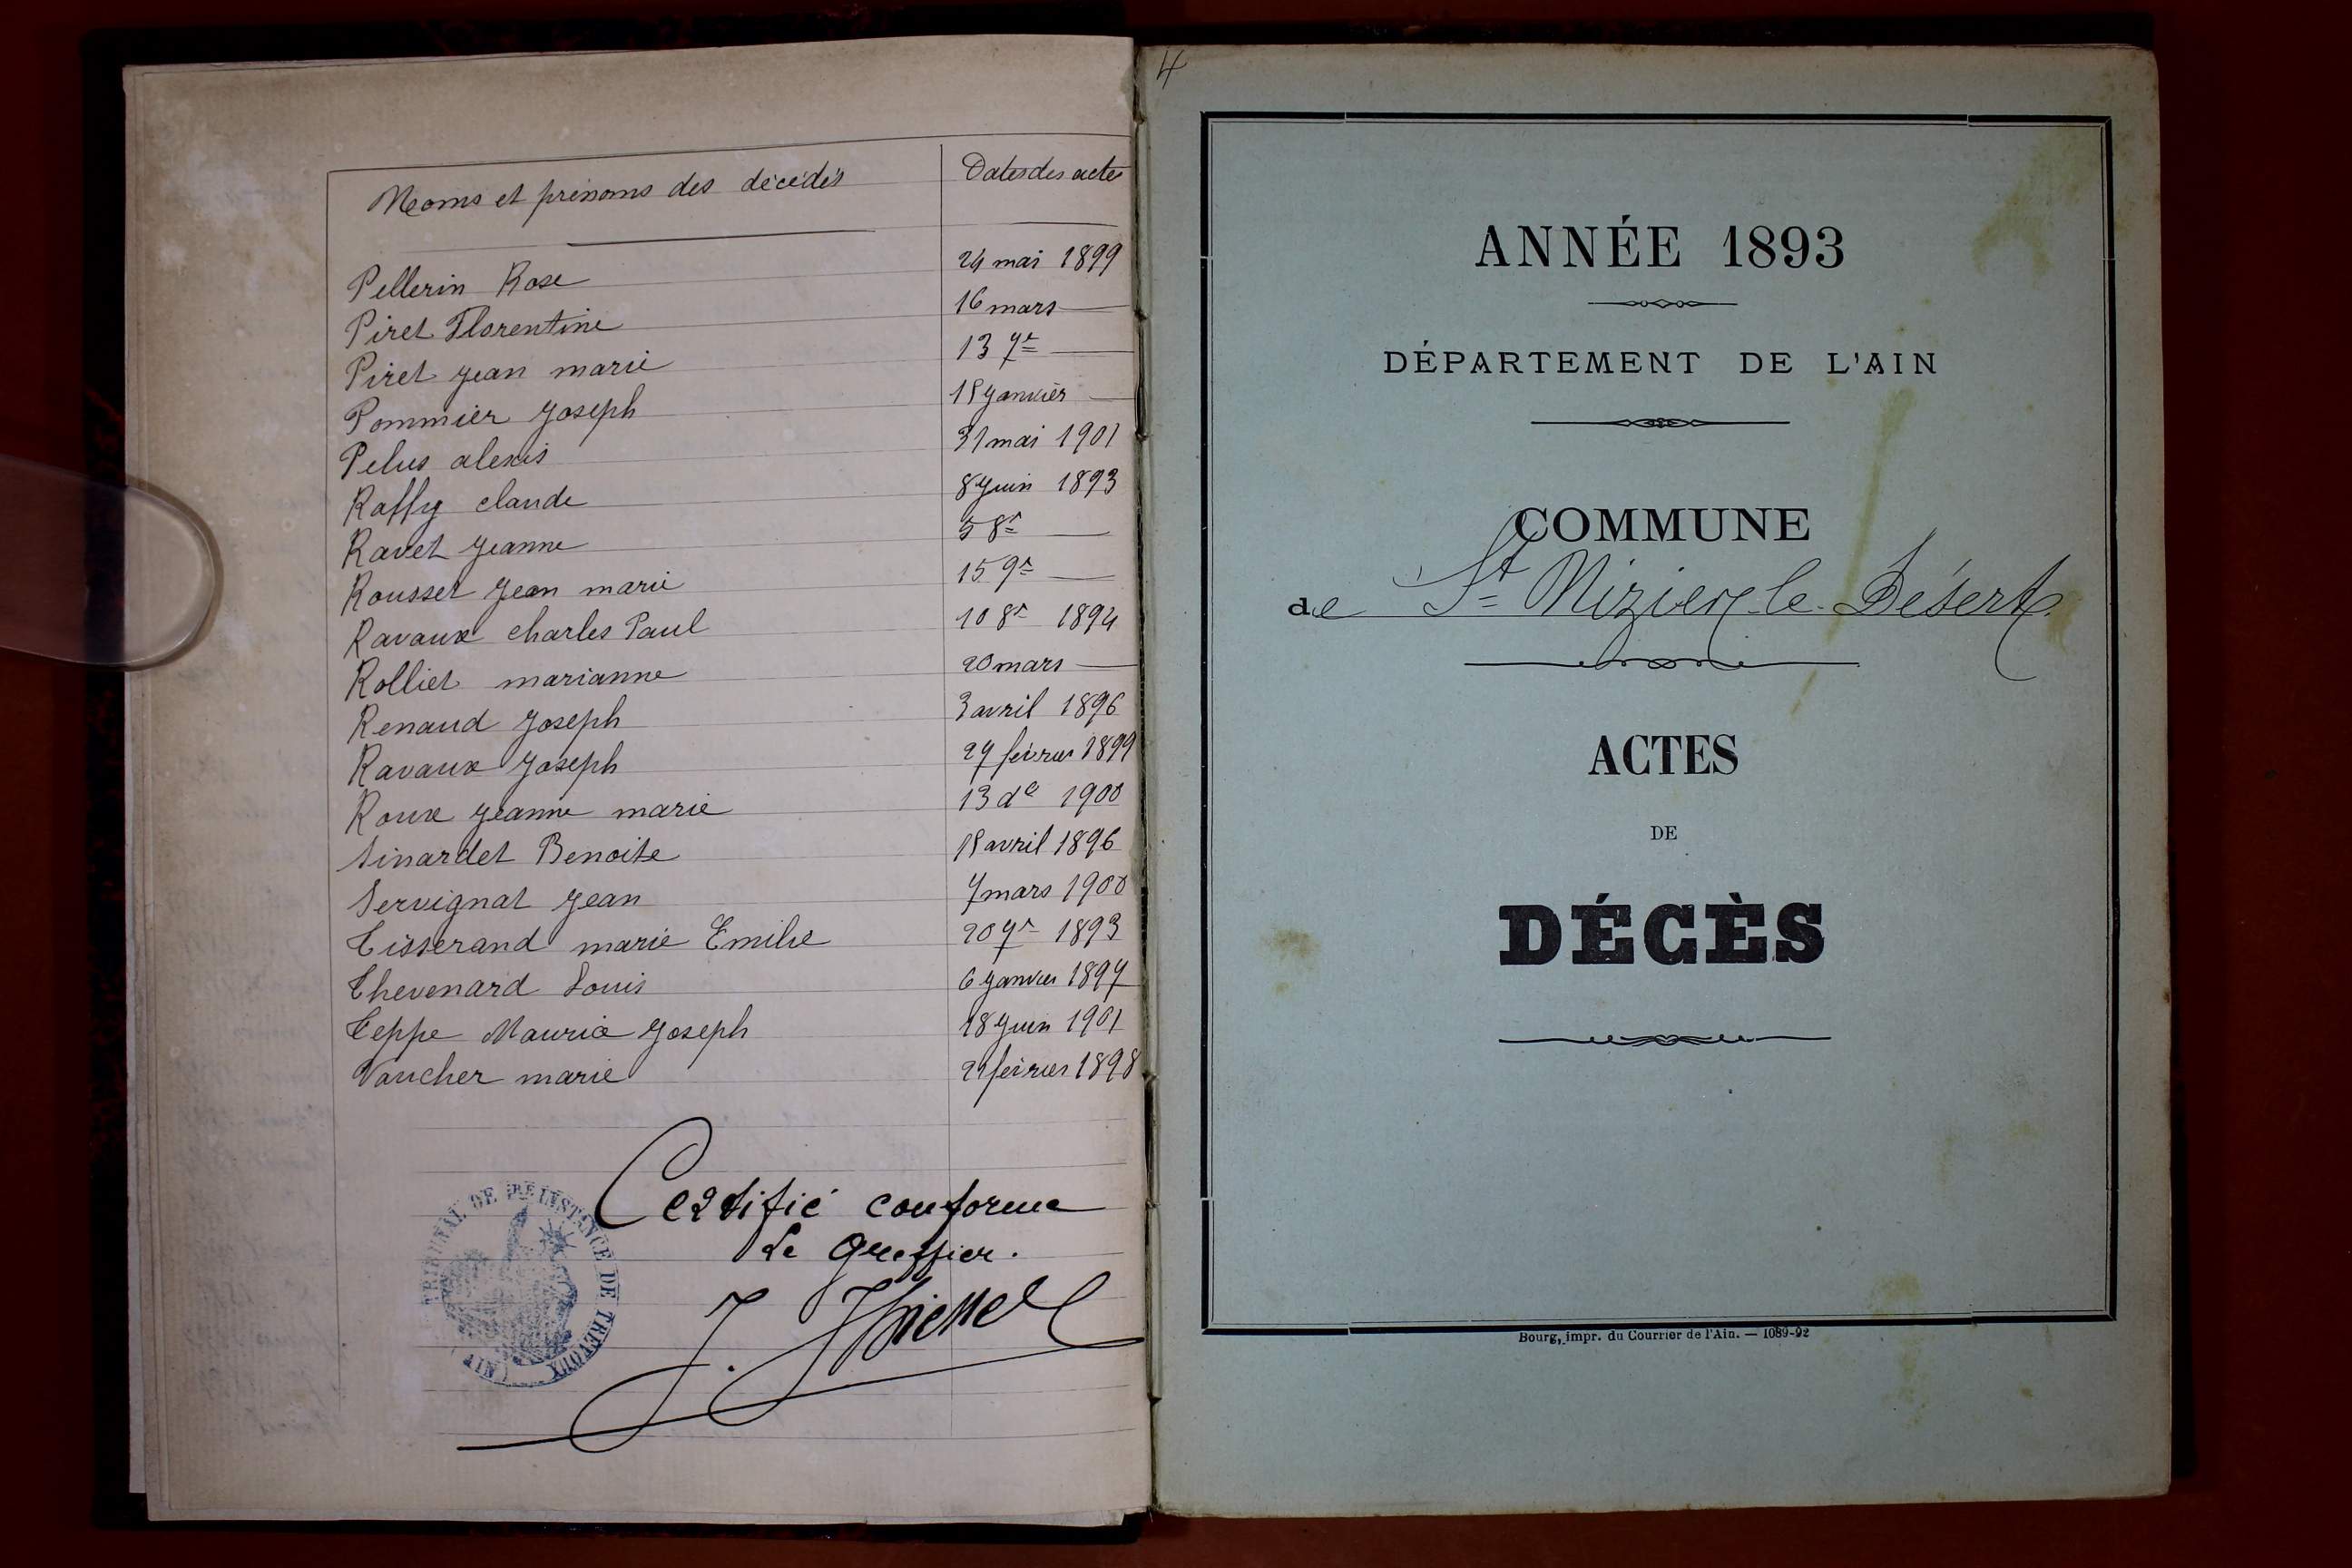 Noms et prénoms des décédés Dates des actes
Pellerin Rose 24 mai 1899
Piret Florentine 16 mars —
Piret Jean marie 13 7re —
Pommier Joseph 15 Janvier —
Pelus alexis 31 mai 1901
Raffy claude 8 Juin 1893
Ravet Jeanne 5 8re —
Rousset Jean marie 15 9re —
Ravaux charles Paul 10 8re 1894
Rolliet marianne 20 mars —
Renaud Joseph 3 avril 1896
Ravaux Joseph 27 février 1899
Roux Jeanne marie 13 de 1900
Sinardet Benoite 15 avril 1896
Servignat Jean 7 mars 1900
Tisserand marie Emilie 20 7re 1893
Thevenard Louis 6 Janvier 1897
Teppe Maurice Joseph 18 Juin 1901
Vaucher marie février 1898
Certifié conforme
Le Greffier.
TRIBUNAL DE 1RE INSTANCE DE TREVOUX (AIN)
4
ANNÉE 1893
DÉPARTEMENT DE L'AIN
COMMUNE
de St Nizier le Désert
ACTES
DE
DÉCÈS
Bourg, impr. du Courrier de l'Ain. — 1089-92